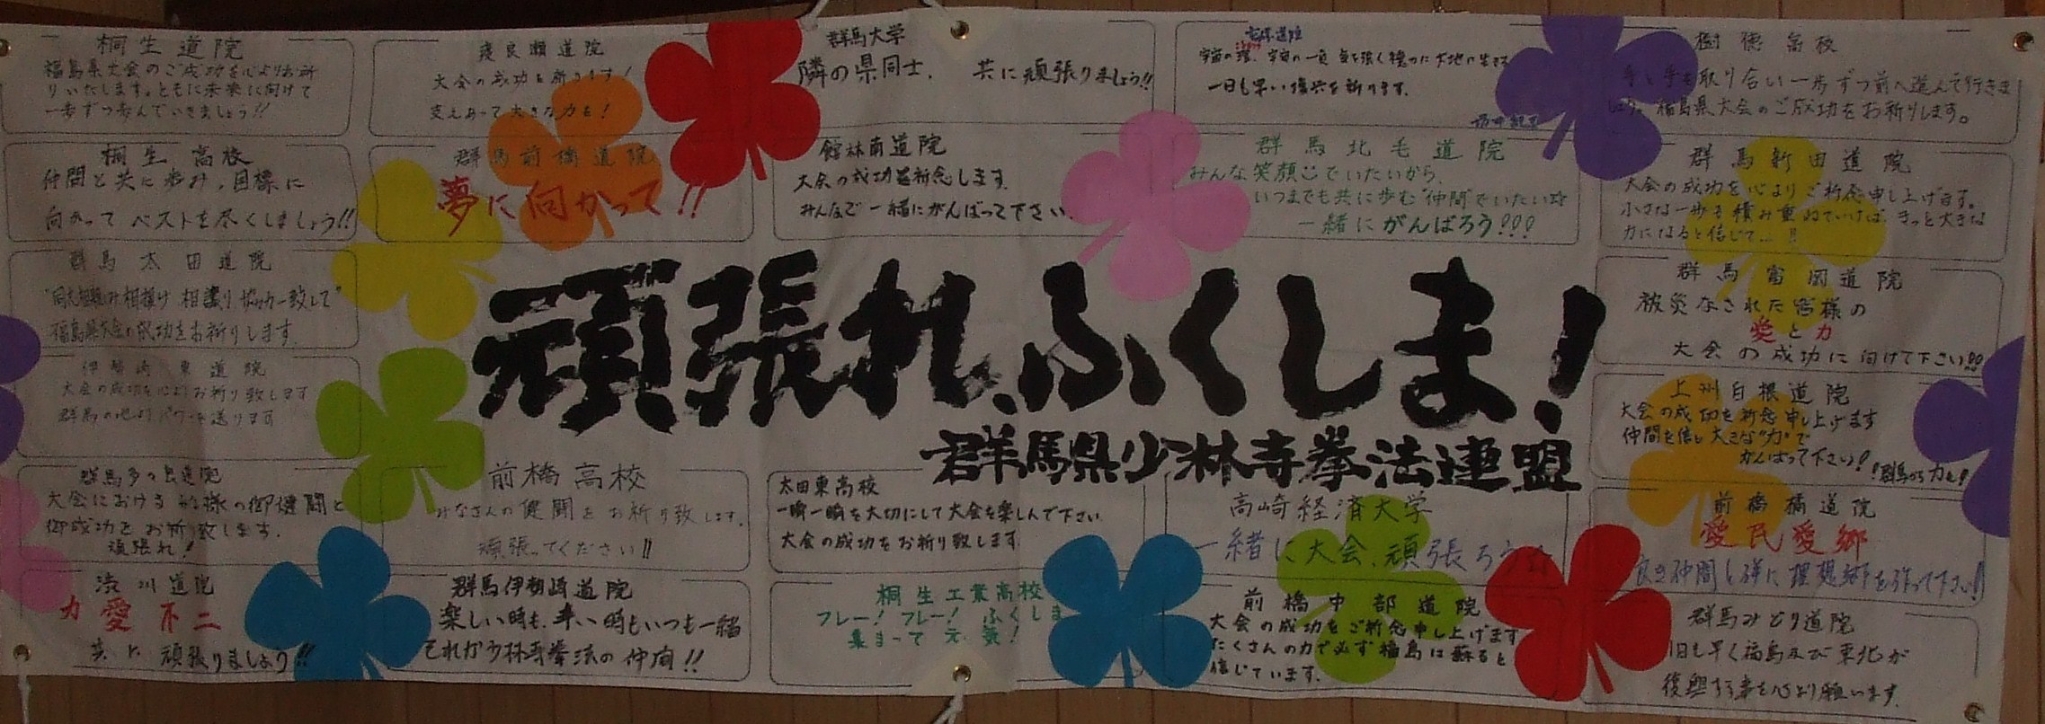 桐生道院
福島県大会のご成功を心よりお祈
りいたします。ともに未来に向けて
一歩ずつ歩んでいきましょう!!
渡良瀬道院
大会の成功を祈ります!
支えあって大きな力を!
群馬大学
隣の県同士、共に頑張りましょう!!
一日も早い復興を祈ります。
樹徳高校
手と手を取り合い一歩ずつ前へ進んで行きま
しょう。福島県大会のご成功をお祈りします。
桐生高校
仲間と共に歩み、目標に
向かってベストを尽くしましょう!!
群馬前橋道院
夢に向かって!!
館林南道院
大会の成功を祈念します。
みんなで一緒にがんばって下さい。
群馬北毛道院
みんな笑顔でいたいから、
いつまでも共に歩む"仲間"でいたい☆
一緒にがんばろう!!!
群馬新田道院
大会の成功を心よりご祈念申し上げます。
小さな一歩を積み重ねていけば、きっと大きな
力になると信じて…!!
群馬太田道院
福島県大会の成功をお祈りします。
群馬富岡道院
被災なされた皆様の
愛と力
大会の成功に向けて下さい!!!
頑張れ、ふくしま!
群馬県少林寺拳法連盟
伊勢崎東道院
大会の成功を心よりお祈り致します
群馬の地よりパワーを送ります
上州白根道院
大会の成功を祈念申し上げます
仲間を信じ大きな"力"で
がんばって下さい!
群馬から力を!
群馬多の里道院
大会における皆様の御健闘と
御成功をお祈り致します。
頑張れ!
前橋高校
みなさんの健闘をお祈り致します。
頑張ってください!!
太田東高校
一瞬一瞬を大切にして大会を楽しんで下さい。
大会の成功をお祈り致します。
高崎経済大学
一緒に大会、頑張ろう☆
前橋橘道院
愛民愛郷
良き仲間と供に理想郷を作って下さい!!
渋川道院
力愛不二
共に頑張りましょう!!
群馬伊勢崎道院
楽しい時も、辛い時もいつも一緒
それが少林寺拳法の仲間!!
桐生工業高校
フレー!フレー!ふくしま
集まって元気!
前橋中部道院
大会の成功をご祈念申し上げます
たくさんの力で必ず福島は蘇ると
信じています。
群馬みどり道院
1日も早く福島及び東北が
復興する事を心より願います。